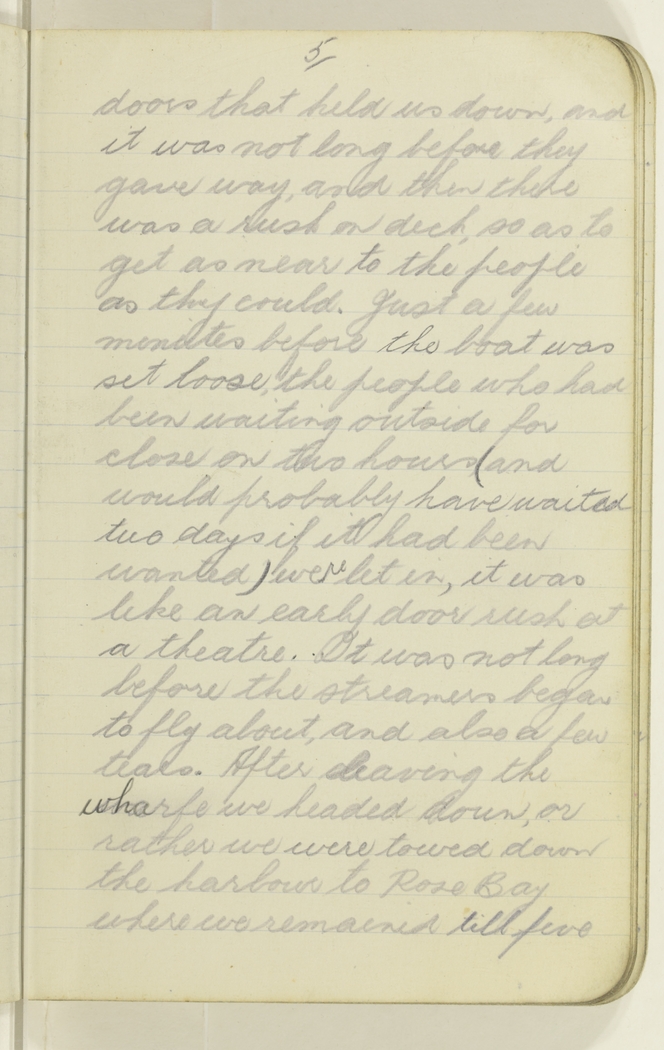 5/
doors that held us down, and
it was not long before they
gave way, and then there
was a rush on deck, so as to
get as near to the people
as thy could. Just a few
minutes before the boat was
set loose, the people who had
been waiting outside for
close on two hours (and
would probably have waited
two days if it had been
wanted) were let in, it was
like an early door rush at
a theatre. It was not long
before the streamers began
to fly about, and also a few
tears. After leaving the
wharfe we headed down, or
rather we were towed down
the harbour to Rose Bay
where we remained till five